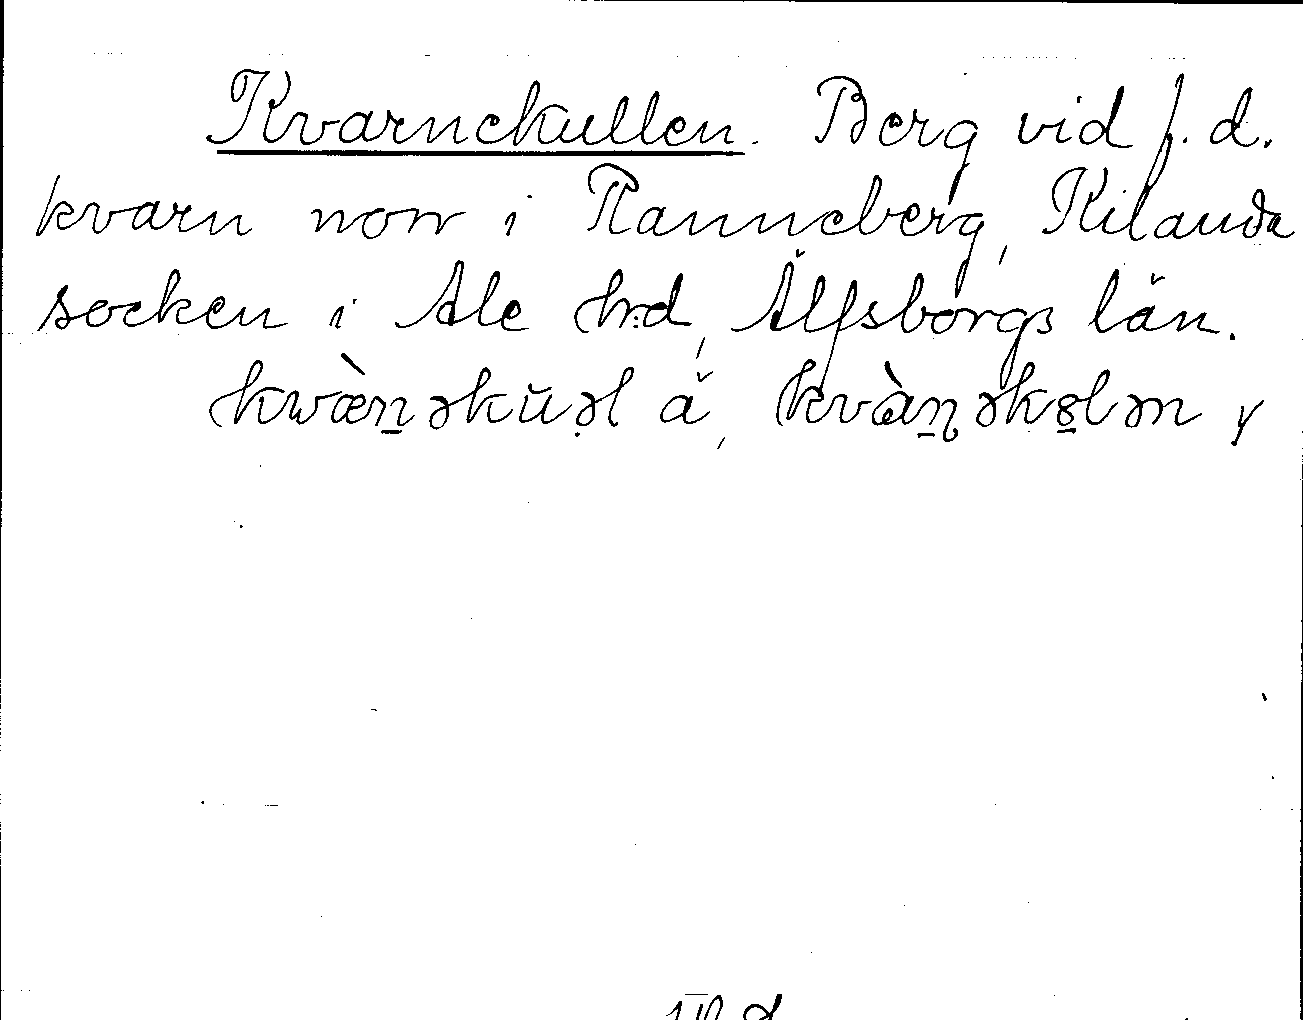 Kvarnekullen. Berg vid f. d.
kvarn norr i Ranneberg, Kilanda
socken i Ale h:d, Älfsborgs län.
kwæ̀n̠əkụ̆əl ä, kvæ̀ɳ̠əkɞ̠lən y